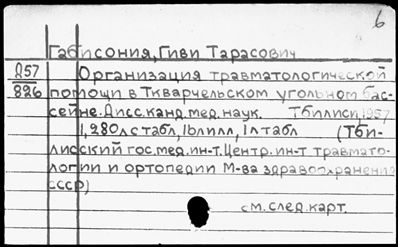 6
Габисония, Гиви Тарасович
Д57 Организация травматологической
826 помощи в Ткварчельском угольном бас-
сейне. Дисс. канд. мед. наук. Тбилиси, 1957
1,280 л с табл, 16 л илл, 1 л табл (Тби-
лисский гос. мед. ин-т. Центр. ин-т травмато-
логии и ортопедии М-ва здравоохранения
СССР)
см. след. карт.